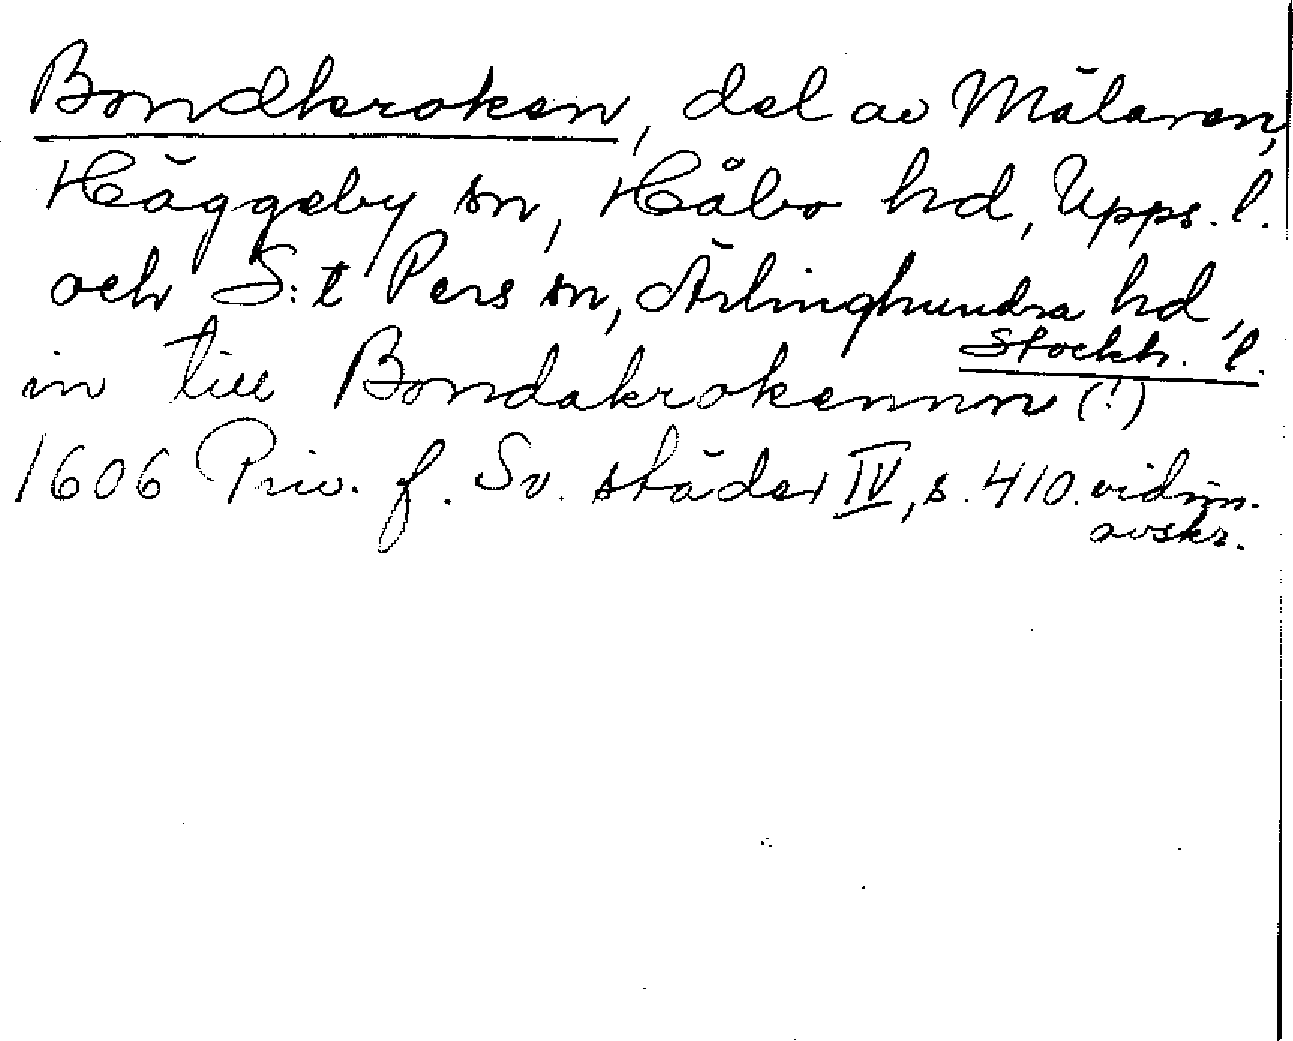 Bondkroken, del av Mälaren,
Häggeby sn, Håbo hd, Upps. l.
och S:t Pers sn, Ärlinghundra hd,
Stockh. l.
in till Bondakrokennn (!)
1606 Priv. f. Sv. städer IV, s. 410. vidim.
avskr.